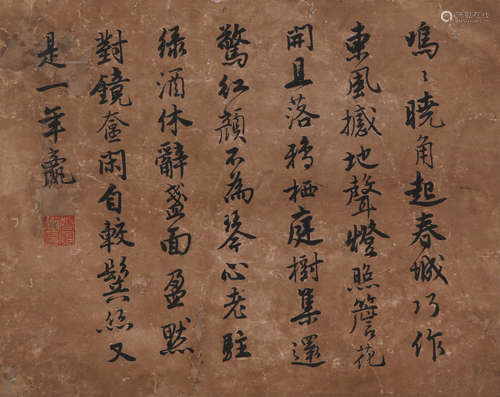 嗚〻曉角起春城巧作
東風撼地聲燈照簷花
開且落鴉栖庭樹集還
驚紅顏不為琴心老駐
綠酒休辭盞面盈默
對鏡奩閑自較鬢絲又
是一年贏